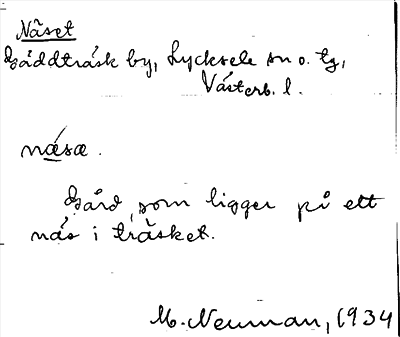 Näset
Gäddträsk by, Lycksele sn o. tg,
Västerb. l.
næsæ.
Gård, som ligger på ett
näs i träsket.
M. Neuman, 1934